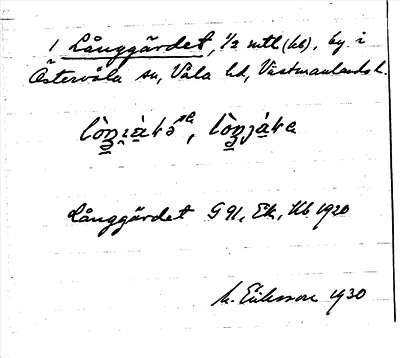 1 Långgärdet, 1/2 mtl (kb), by i
Östervåla sn, Våla hd, Västmanlands l.
Långgärdet G 91, Ek, Kb 1920
M. Eriksson 1930